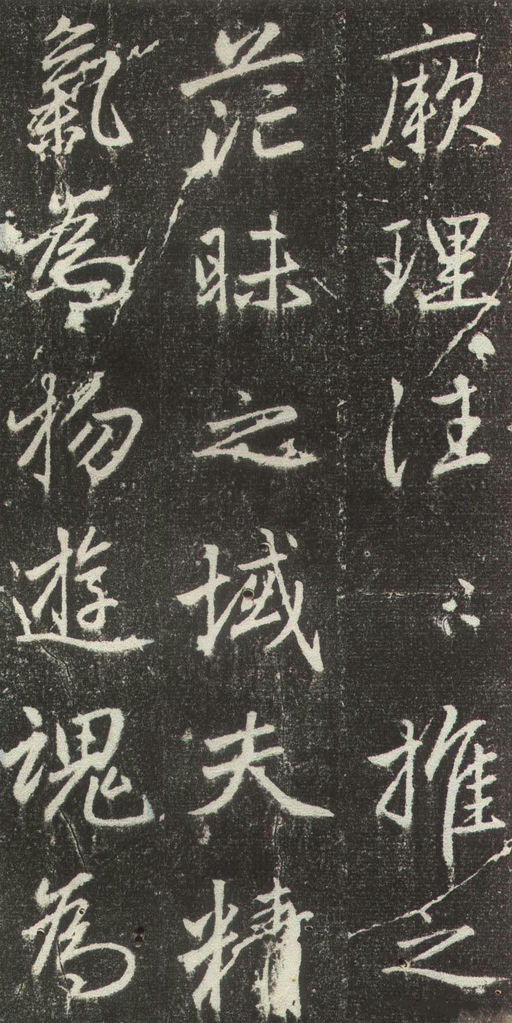 厥理汪〻推之
茫昧之域夫精
氣為物遊魂為